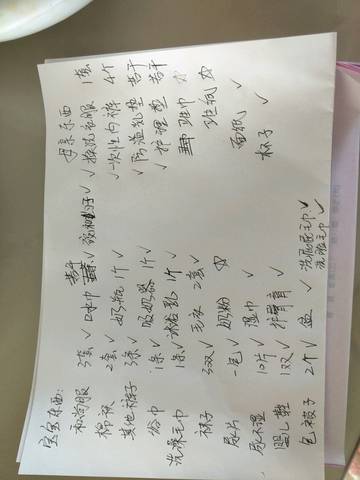 宝宝东西: 母亲东西
和尚服 3套 ✓ 口水巾 若干 ✓ ✓ 换洗衣服 1套
棉袄 2套 ✓ 奶瓶 1个 ✓ ✓ 一次性内裤 4个
其他裤子 3条 ✓ 吸奶器 1个 ✓ ✓ 防溢乳垫 若干
浴巾 1条 ✓ 沐浴乳 1个 ✓ ✓ 护理垫 若干
洗澡毛巾 1条 ✓ 毛衣 2套 ✓ 巾 ☆
袜子 3双 ✓ 奶粉 ☆ 纸 ☆
尿片 一包 ✓ 湿巾 ✓ 面纸 ✓
尿不湿 10片 ✓ 护臀膏 ✓ 杯子 ✓
婴儿鞋 1双 ✓
包被子 2个 ✓ 盆 ✓ 洗屁屁毛巾 ✓
洗脸毛巾 ✓